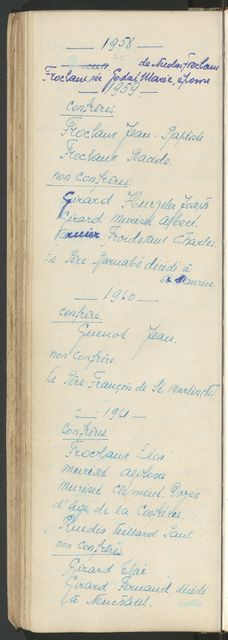 — 1958 —
de Nicolas Frochaux
Frochaux née Godat Marie, épouse
— 1959 —
confrères.
Frochaux Jean-Baptiste
Frochaux Placide.
non confrères.
Girard Hurzeler Joseph
Girard Muriset Albert.
Varnier Froidevaux Charles
Le Père Barnabé décédé à
St Maurice
— 1960 —
confrère.
Quenot Jean.
non confrère.
Le Père François de St. Martin
— 1961 —
confrères.
Frochaux Léon
Muriset Alphonse
Muriset Clément. Doyen
d'âge de la Confrérie
Ruedin Veillard Paul
non confrères
Girard Eloi
Girard Fernand, décédé
à Neuchâtel.